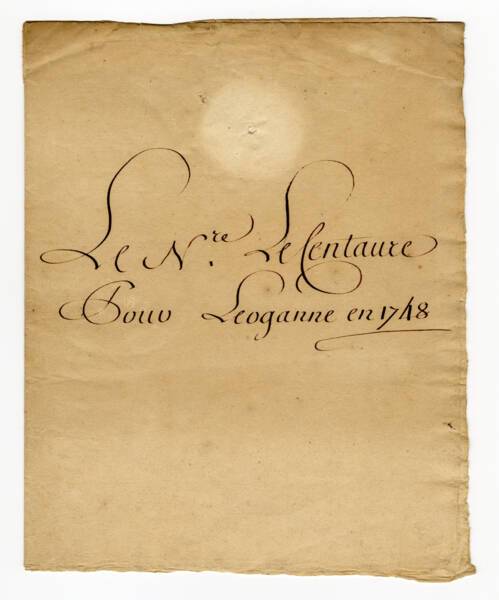 Le N.re Le Centaure
Pour Leoganne en 1748